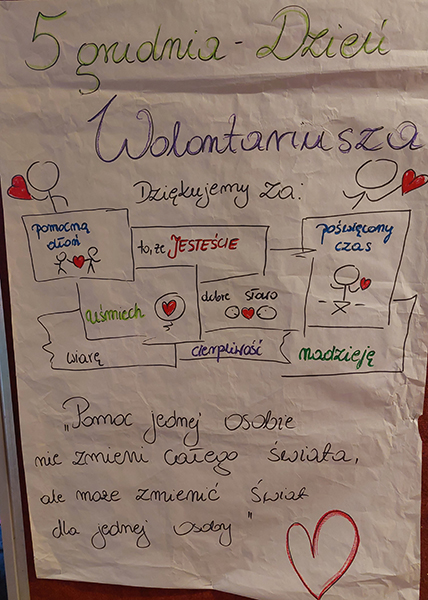 5 grudnia - Dzień
Wolontariusza
Dziękujemy za:
pomocną
dłoń
to, że JESTEŚCIE
poświęcony
czas
uśmiech
dobre słowo
wiarę
cierpliwość
nadzieję
"Pomoc jednej osobie
nie zmieni całego świata,
ale może zmienić świat
dla jednej osoby"